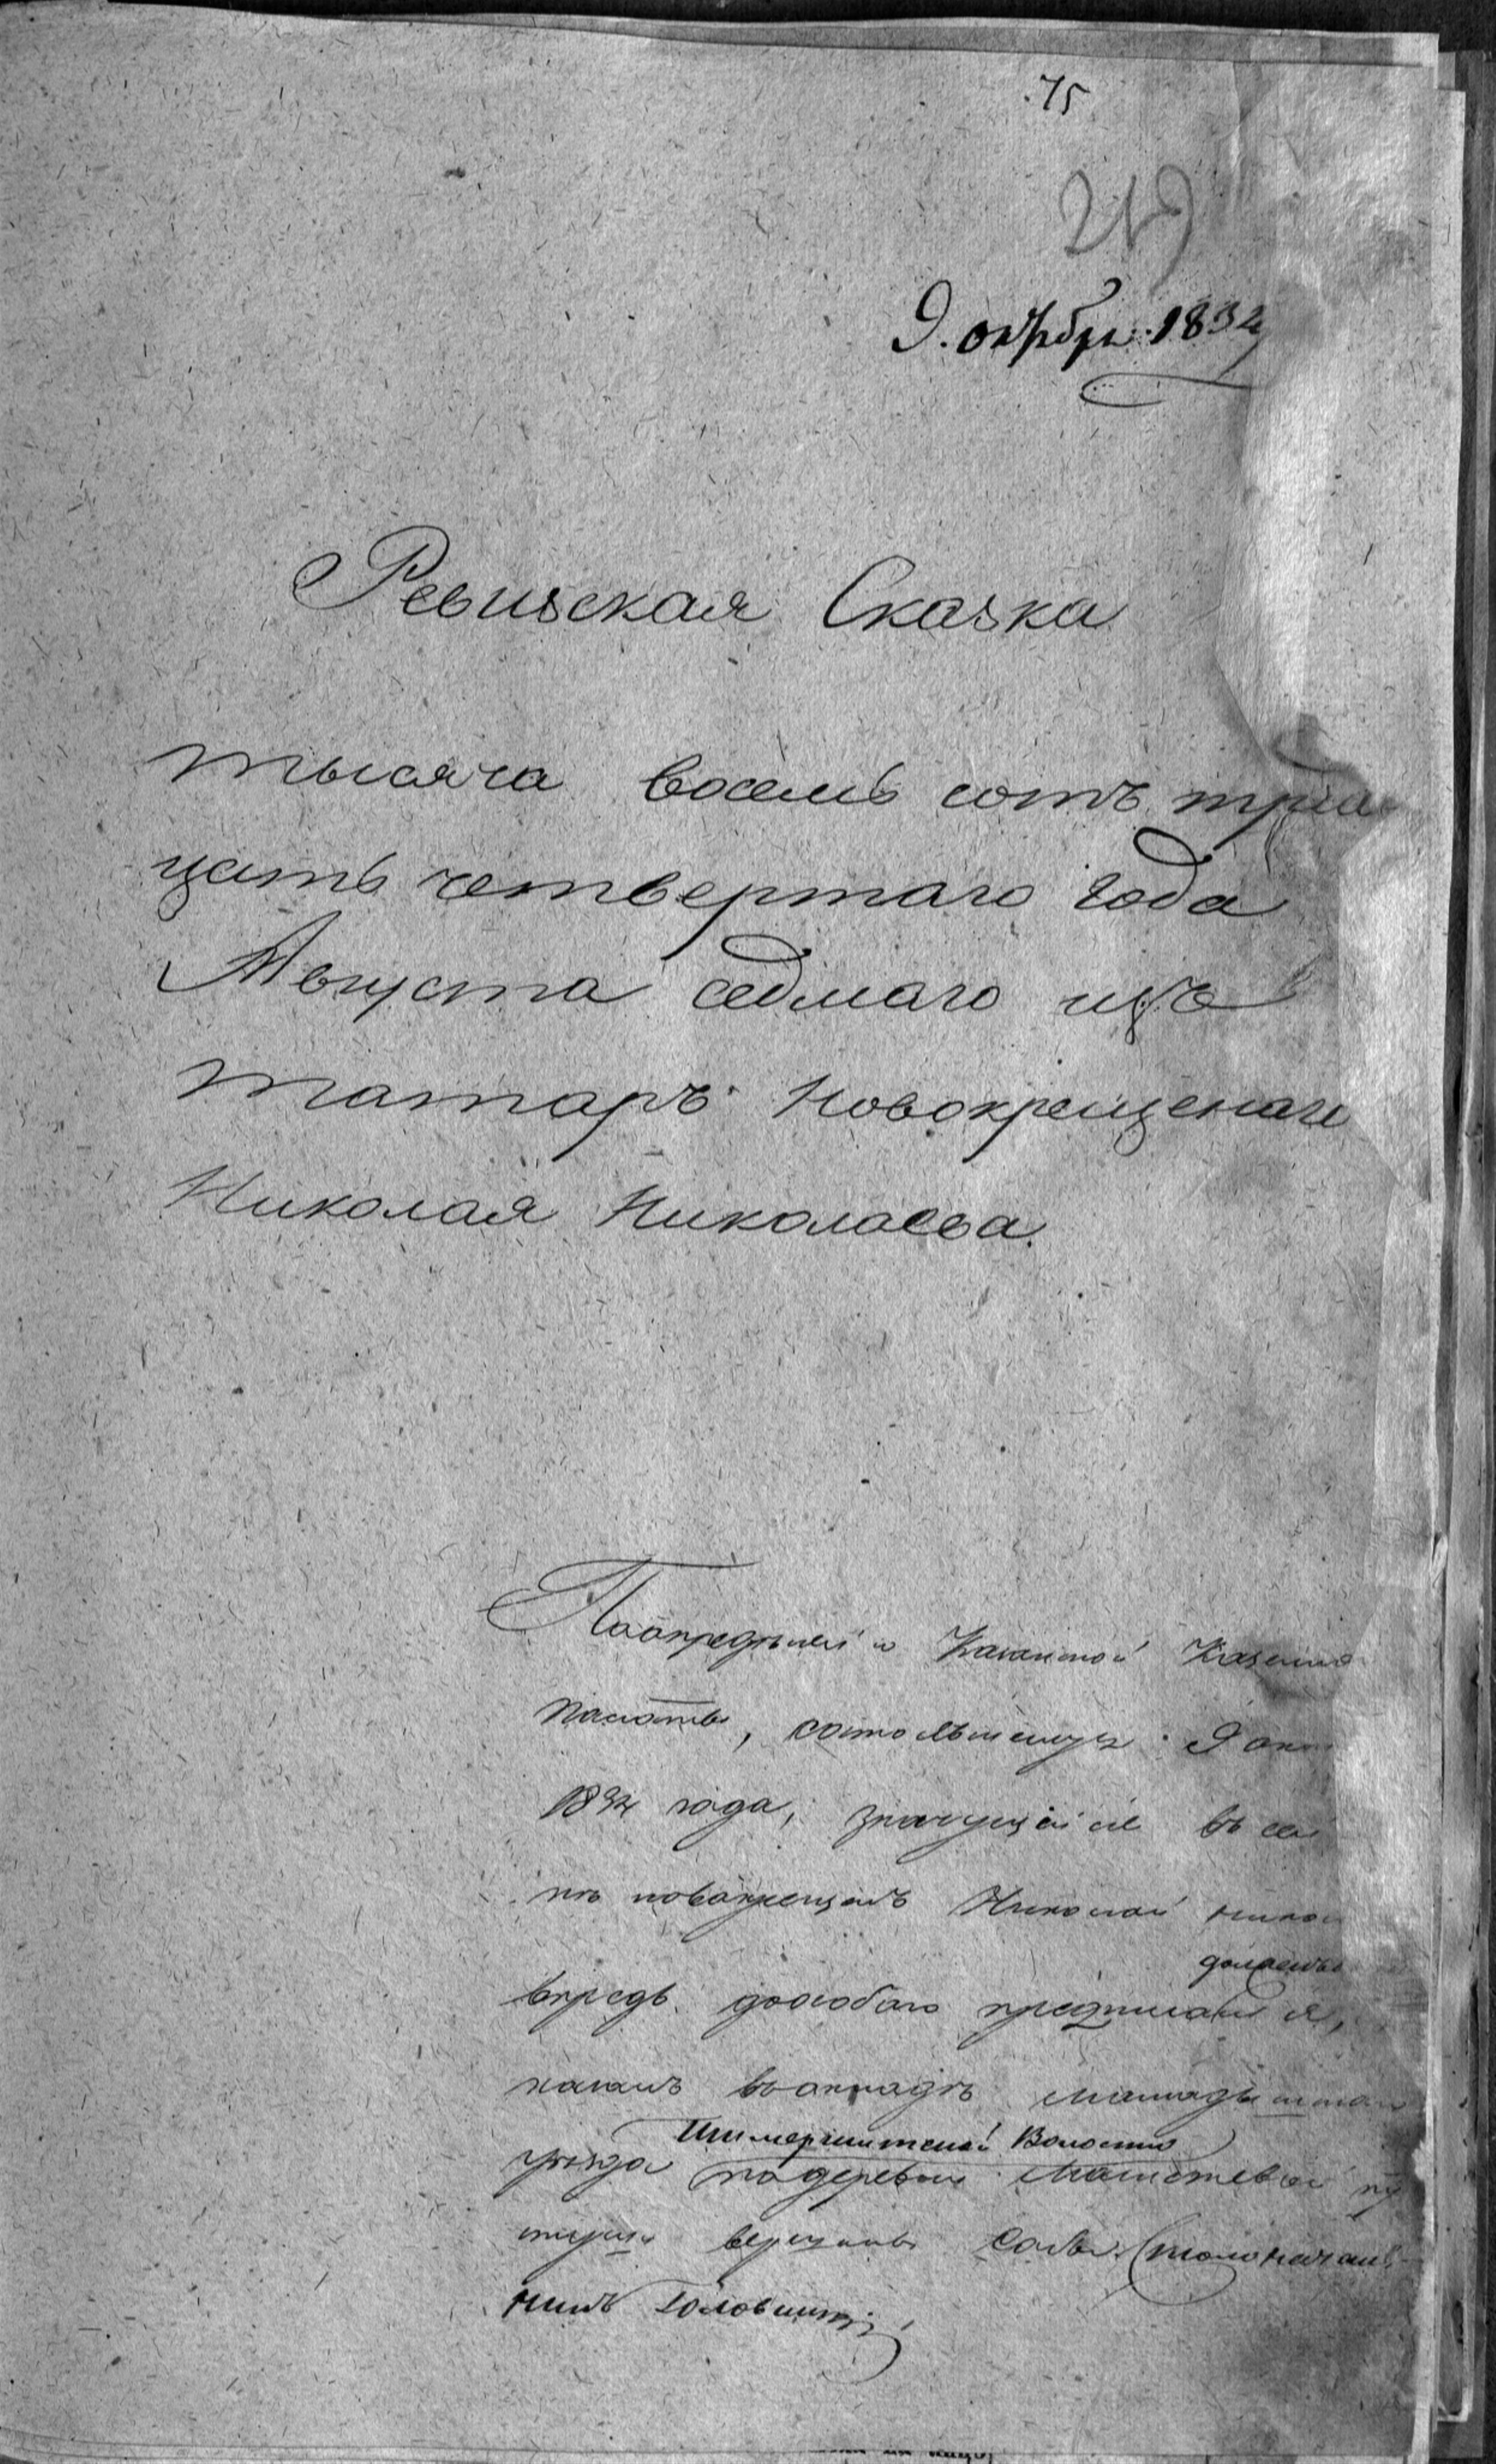 75
219
9. октября 1834
Ревизская Сказка
тысяча восемь сотъ трид
цать четвертаго года
Августа седмаго изъ
татаръ новокрещенаго
Николая Николаева.
По определенію Казанской Казенно
палаты, состоявшемуся 9 окт
1834 года, значущійся въ сей
новокрещенъ Николай никол
долженъ
впредь до особаго предписанія,
въ окладѣ Мамадышскаго
Шимершитской Волости
уѣзда по деревни
вершины Сабы. Столоначаль
никъ Головинскій